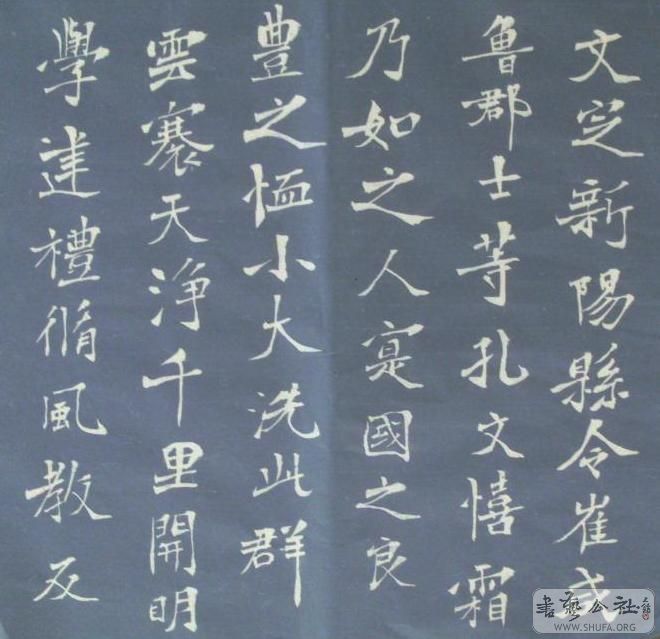 文㝎新陽縣令崔
魯郡士等孔文憘霜
乃如之人寔國之良
豊之恤小大洗此群
雲褰天浄千里開明
學建禮脩風教反
書藝公社
WWW.SHUFA.ORG